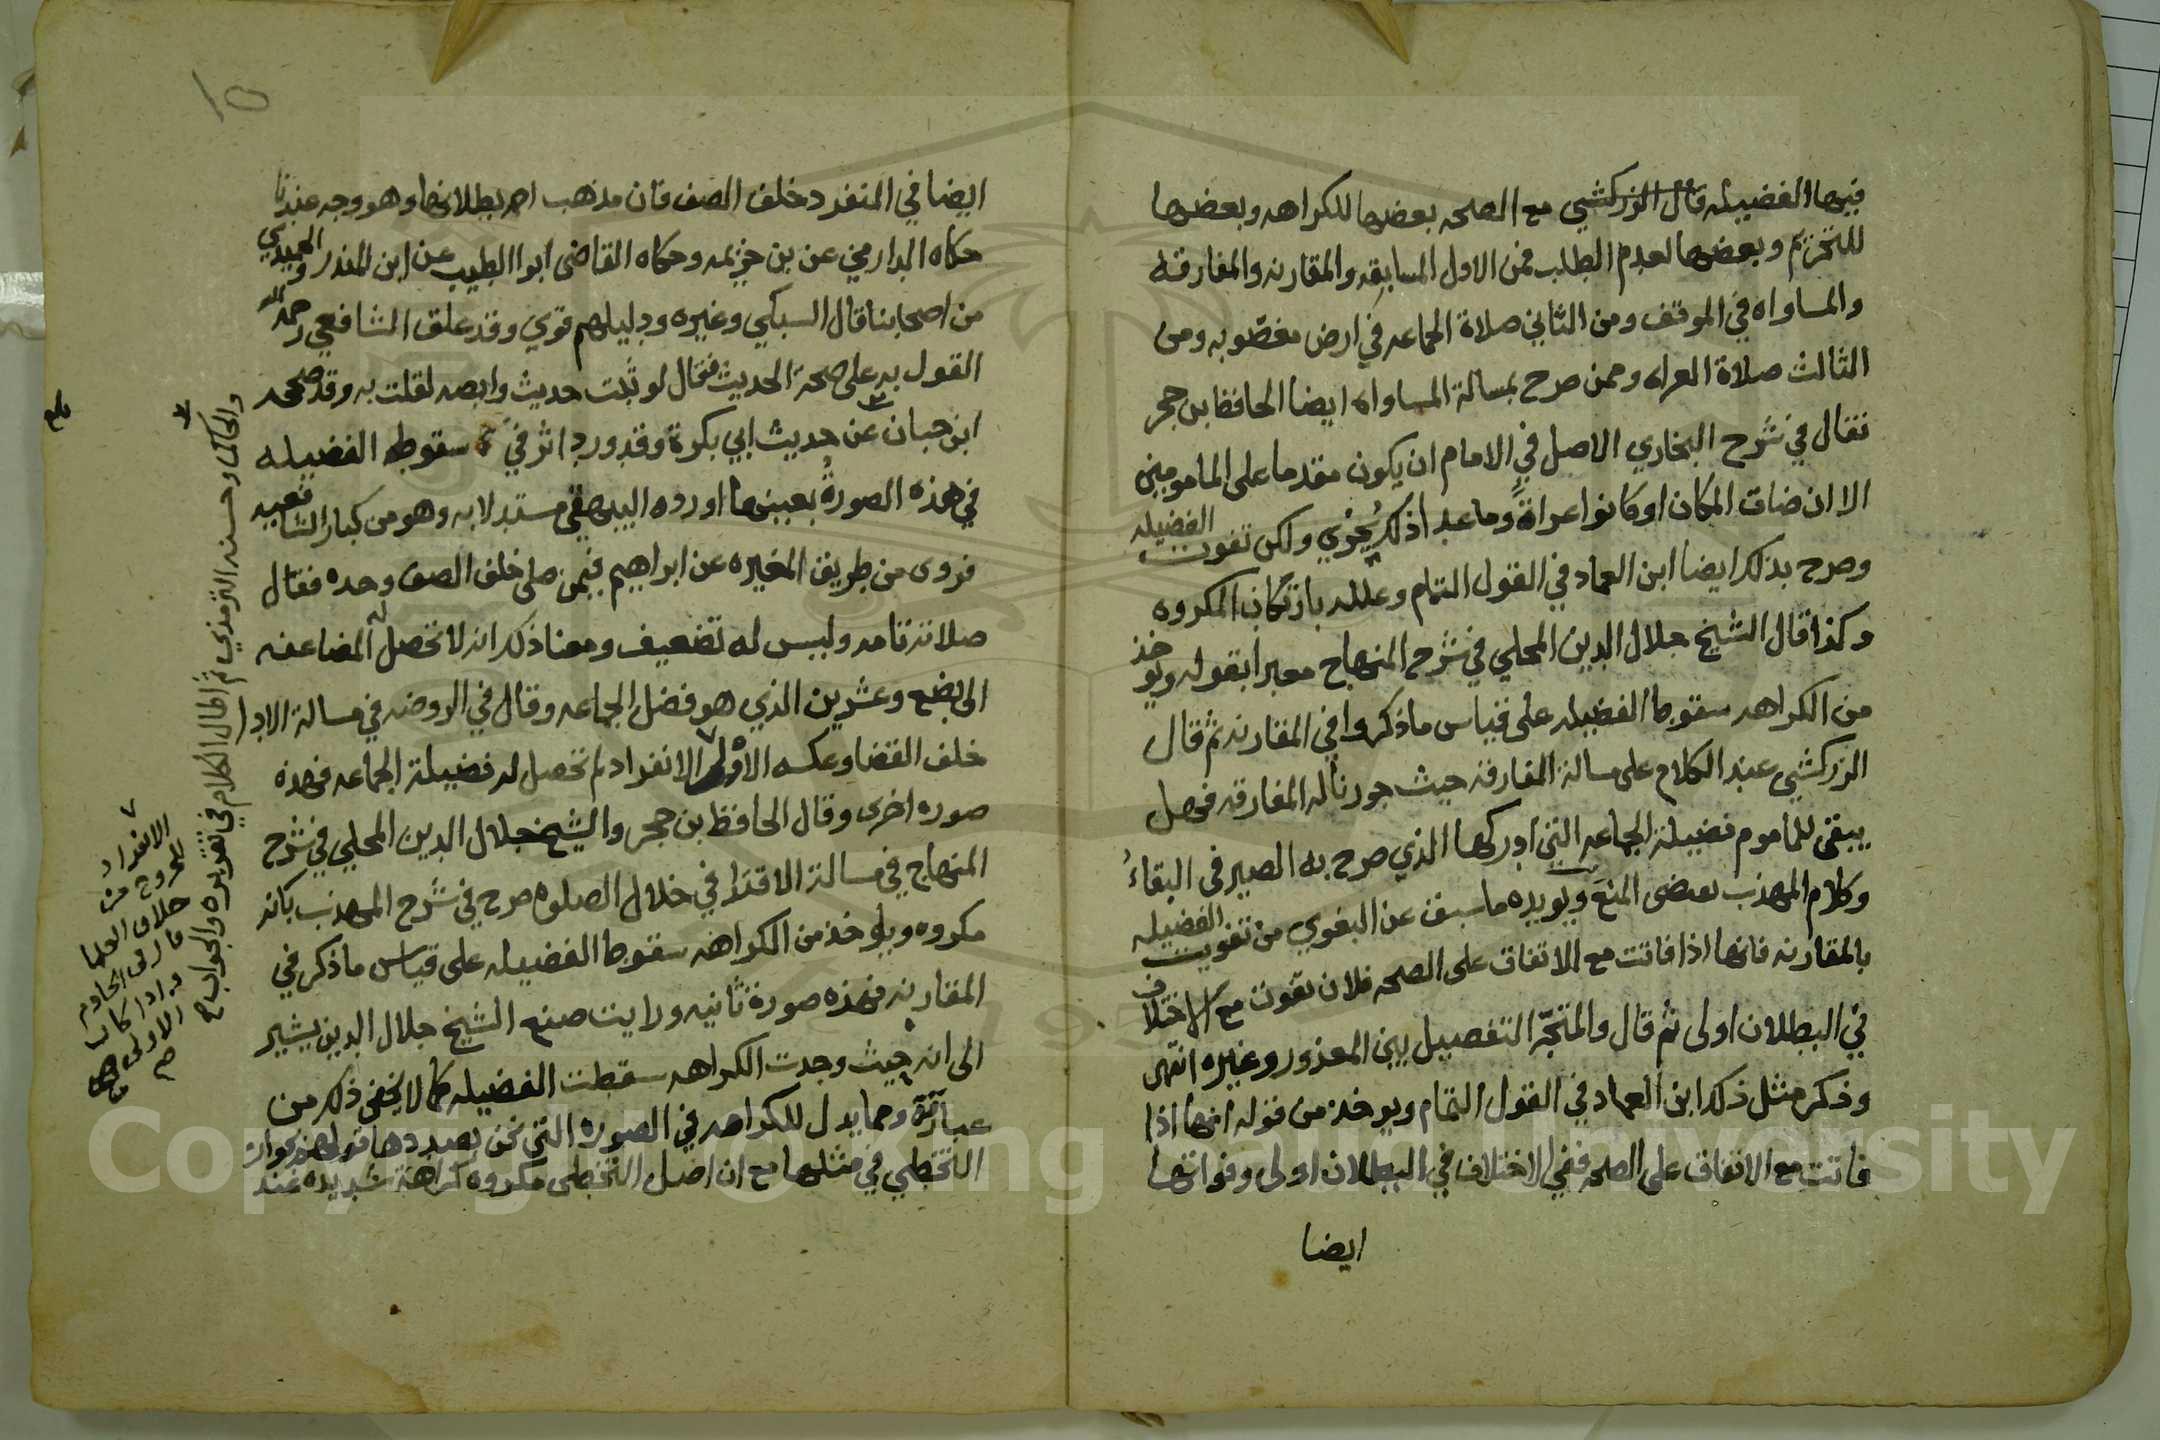 فيها الفضيله قال الزركشي مع الصحه بعضها للكراهه وبعضها
للتحريم وبعضها لعدم الطلب فمن الاول المسابقه والمقارنه والمفارقه
والمساواه في الموقف ومن الثاني صلاة الجماعه في ارض مغصوبه ومن
الثالث صلاة العراه وممن صرح بمسالة المساواه ايضا الحافظ بن حجر
فقال في شرح البخاري الاصل في الامام ان يكون مقدما على المامومين
الا ان ضاق المكان او كانوا عراة وما عدا ذلك يجزي ولكن تفوت الفضيله
وصرح بذلك ايضا ابن العماد في القول التمام وعلله بارتكاب المكروه
وكذا قال الشيخ جلال الدين المحلي في شرح المنهاج معبرا بقوله ويوخذ
من الكراهه سقوط الفضيله على قياس ما ذكروا في المقارنه ثم قال
الزركشي عند الكلام على مسالة المفارقه حيث جوزنا له المفارقه فهل
يبقى للماموم فضيلة الجماعه التي ادركها الذي صرح به الصيرفى البقاءُ
وكلام المهذب يقتضى المنع ويويده ما سبق عن البغوي من تفويت الفضيله
بالمقارنه فانها اذا فاتت مع الاتفاق على الصحه فلان تفوت مع الاختلاف
في البطلان اولى ثم قال والمتجه التفصيل بين المعذور وغيره انتهى
وذكر مثل ذلك ابن العماد في القول التمام ويوخذ من قوله انها اذا
فاتت مع الاتفاق على الصحه ففي الاختلاف في البطلان اولى وفواتها
ايضا
١٥
ايضا في المنفرد خلف الصف فان مذهب احمد بطلانها وهو وجه عندنا
حكاه الدارمي عن بن خزيمه وحكاه القاضى ابوا الطيب عن ابن المنذر والحميدي
من اصحابنا قال السبكي وغيره ودليلهم قوي وقد علق الشافعي رحمه الله
القول به على صحة الحديث فقال لو ثبت حديث وابصه لقلت به وقد صححه
ابن حبان عن حديث ابي بكرة وقد ورد اثر في سقوط الفضيله
في هذه الصورة بعينها اورده البيهقي مستدلا به وهو من كبار الشافعيه
فروى من طريق المغيره عن ابراهيم فيمن صلى خلف الصف وحده فقال
صلاته تامه وليس له تضعيف ومعنا ذلك انه لا تحصل له المضاعفه
الى بضع وعشرين الذي هو فضل الجماعه وقال في الروضه في مسالة الادا
خلف القضا وعكسه الاولى الانفراد لم تحصل له فضيلة الجماعه فهذه
صوره اخرى وقال الحافظ بن حجر والشيخ جلال الدين المحلي في شرح
المنهاج في مسالة الاقتدا في خلال الصلوه صرح في شرح المهذب بانه
مكروه ويوخذ من الكراهه سقوط الفضيله على قياس ما ذكر في
المقارنه فهذه صورة ثانيه ورايت صنع الشيخ جلال الدين يشير
الى انه حيث وجدت الكراهه سقطت الفضيله كما لا يخفى ذلك من
عبارته ومما يدل للكراهه في الصوره التي نحن بصددها قولهم بجواز
التخطي في مثلها مع ان اصل التخطى مكروه كراهة شديده عند
والحاكم وحسنه الترمذي ثم اطال الكلام في تقريره والجواب
الانفراد
للخروج من
خلاف العلما